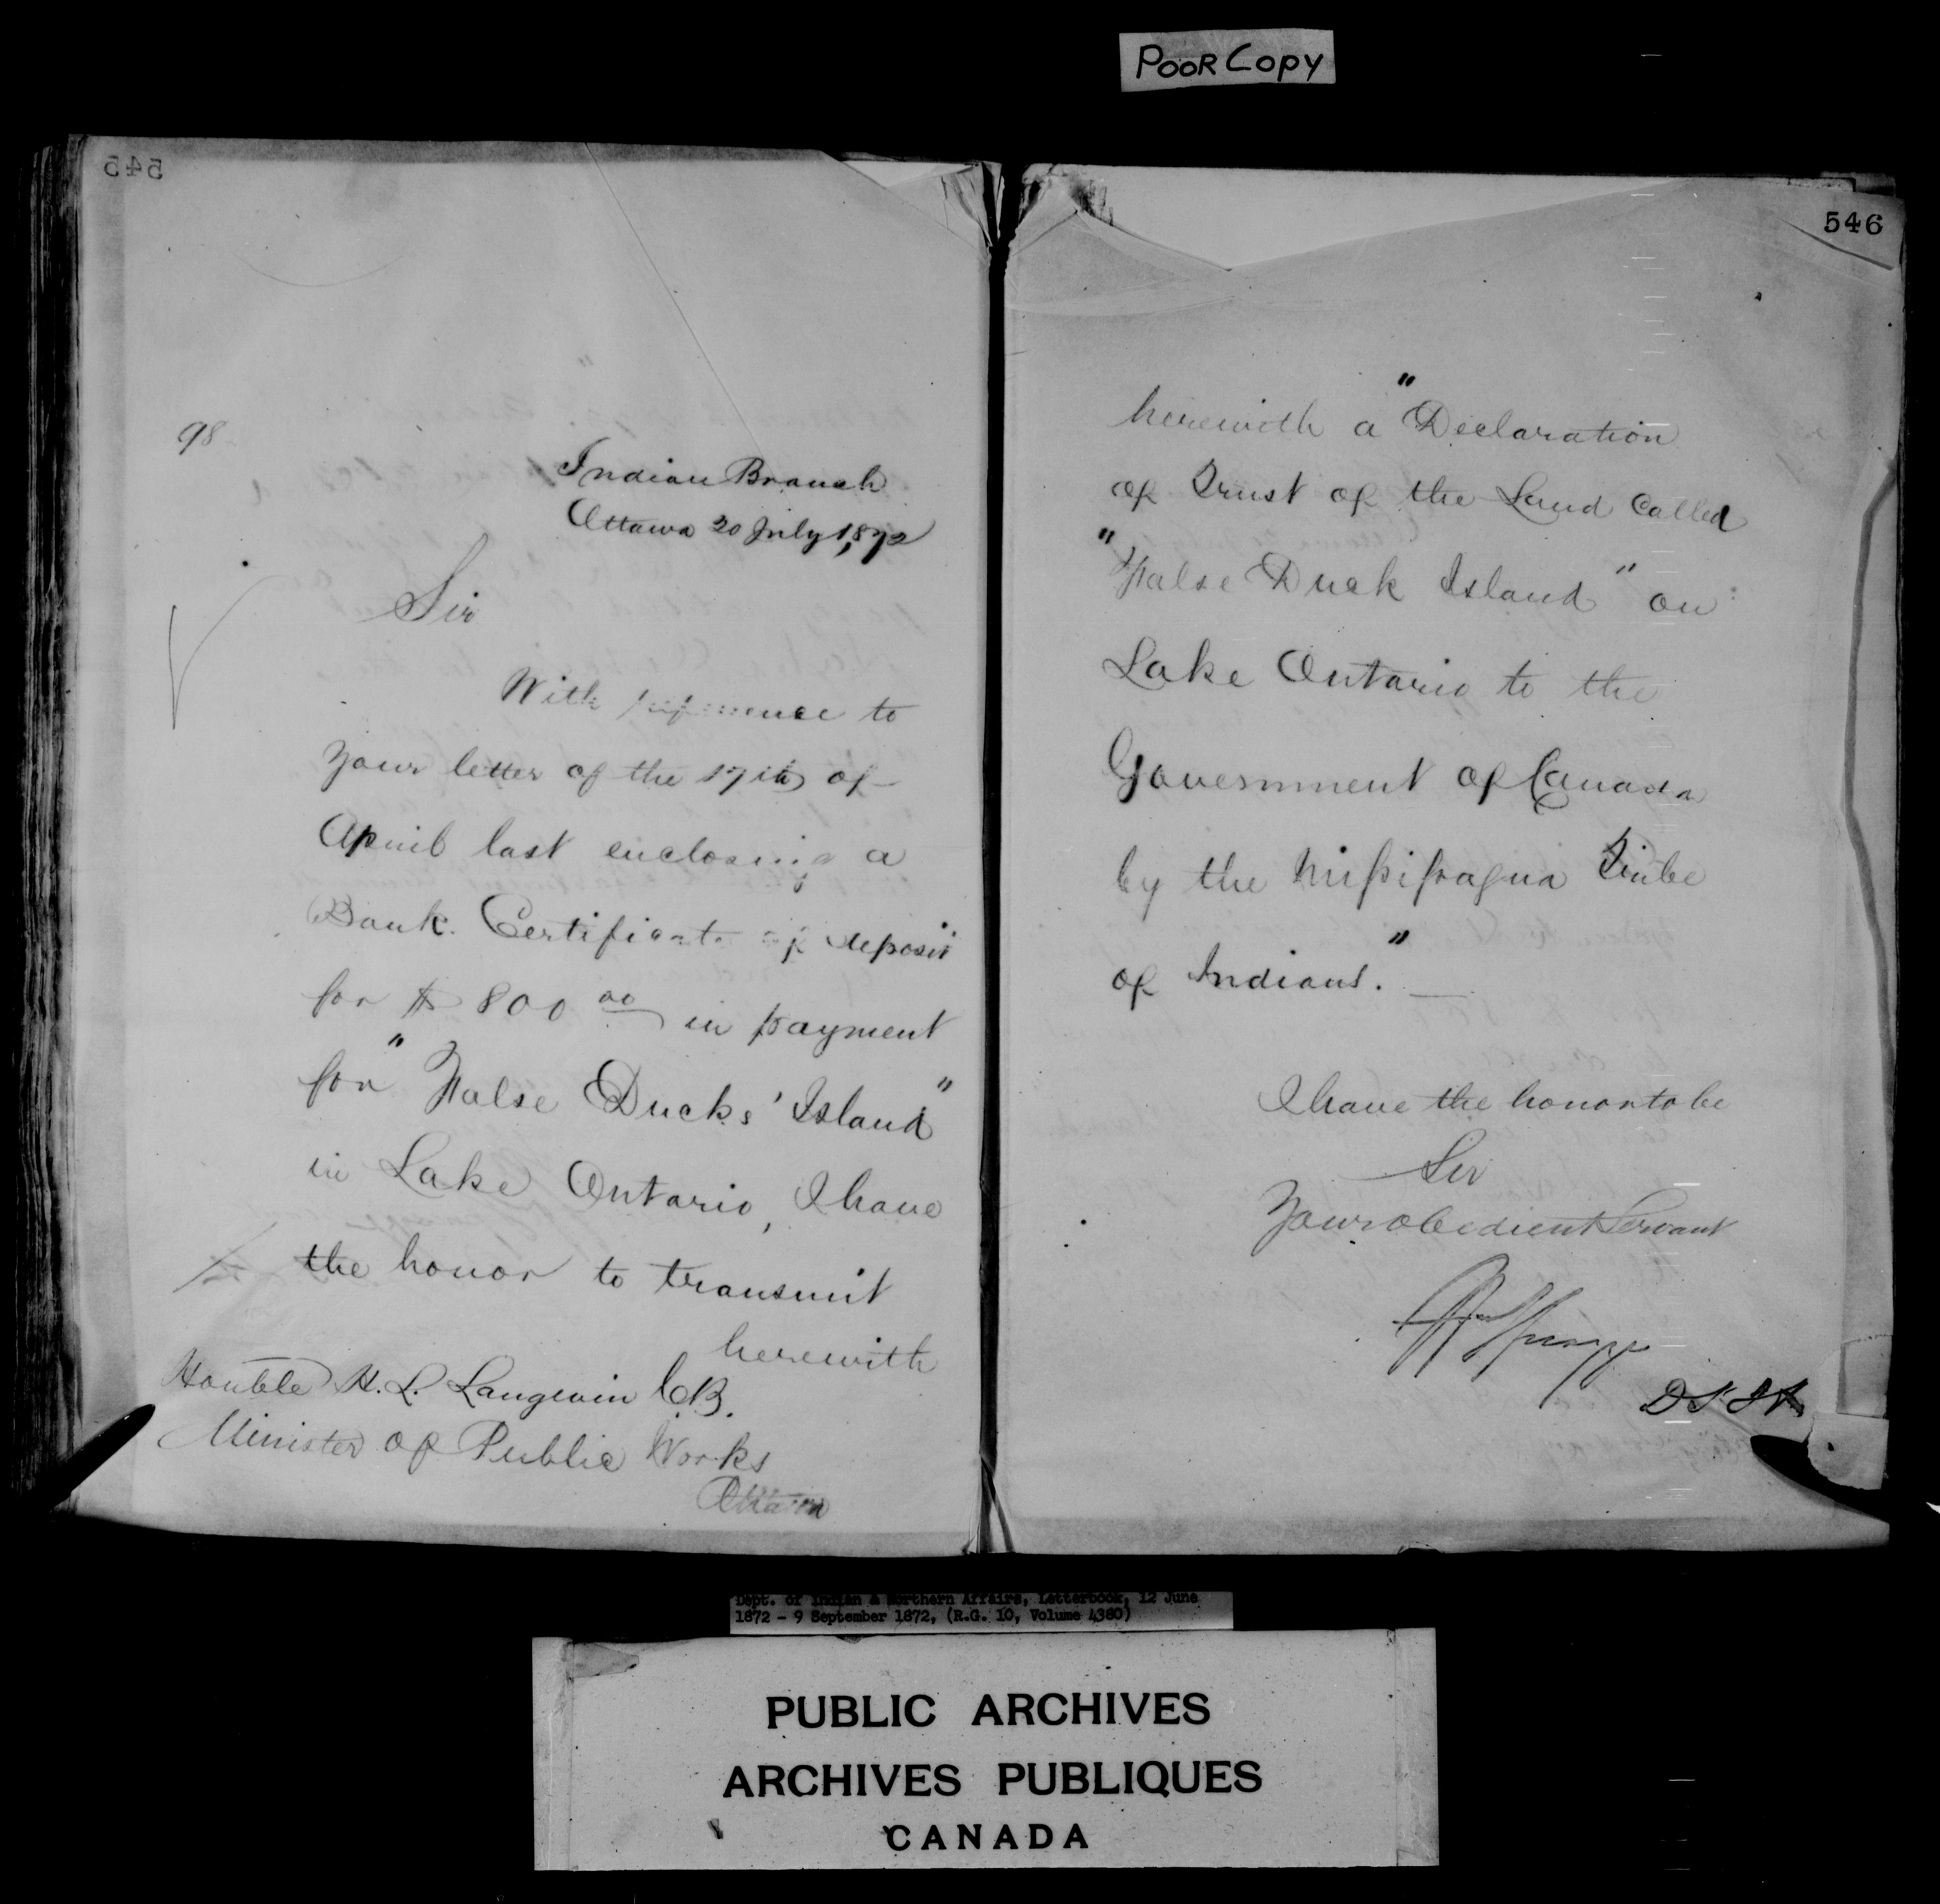 POOR COPY
545
98
Indian Branch
Ottawa 20 July 1872
Sir
With reference to
your letter of the 17th of
April last enclosing a
Bank Certificate of deposit
for $800 00 in payment
for "False Ducks' Island"
in Lake Ontario, I have
the honor to transmit
herewith
Honble H. L. Langevin C.B.
Minister of Public Works
Ottawa
546
herewith a "Declaration
of Trust of the Land Called
"False Duck Island" on
Lake Ontario to the
Government of Canada
by the Missisagua Tribe
of Indians."
I have the honor to be
Sir
Your obedient Servant
Spragge
D S I A
Dept. of Indian & Northern Affairs, Letterbook, 12 June
1872 - 9 September 1872, (R.G. 10, Volume 4380)
PUBLIC ARCHIVES
ARCHIVES PUBLIQUES
CANADA